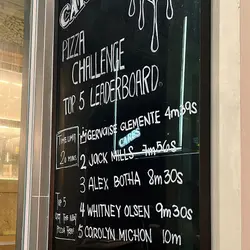 PIZZA
CHALLENGE
TOP 5 LEADERBOARD
TIME LIMIT
20 mins
1 GERVAISE CLEMENTE 4m39s
CARBS
2 JACK MILLS 7m56s
3 ALEX BOTHA 8m30s
4 WHITNEY OLSEN 9m30s
5 CAROLYN MICHON 10m
Top 5
WIN THE NEW
PIZZA